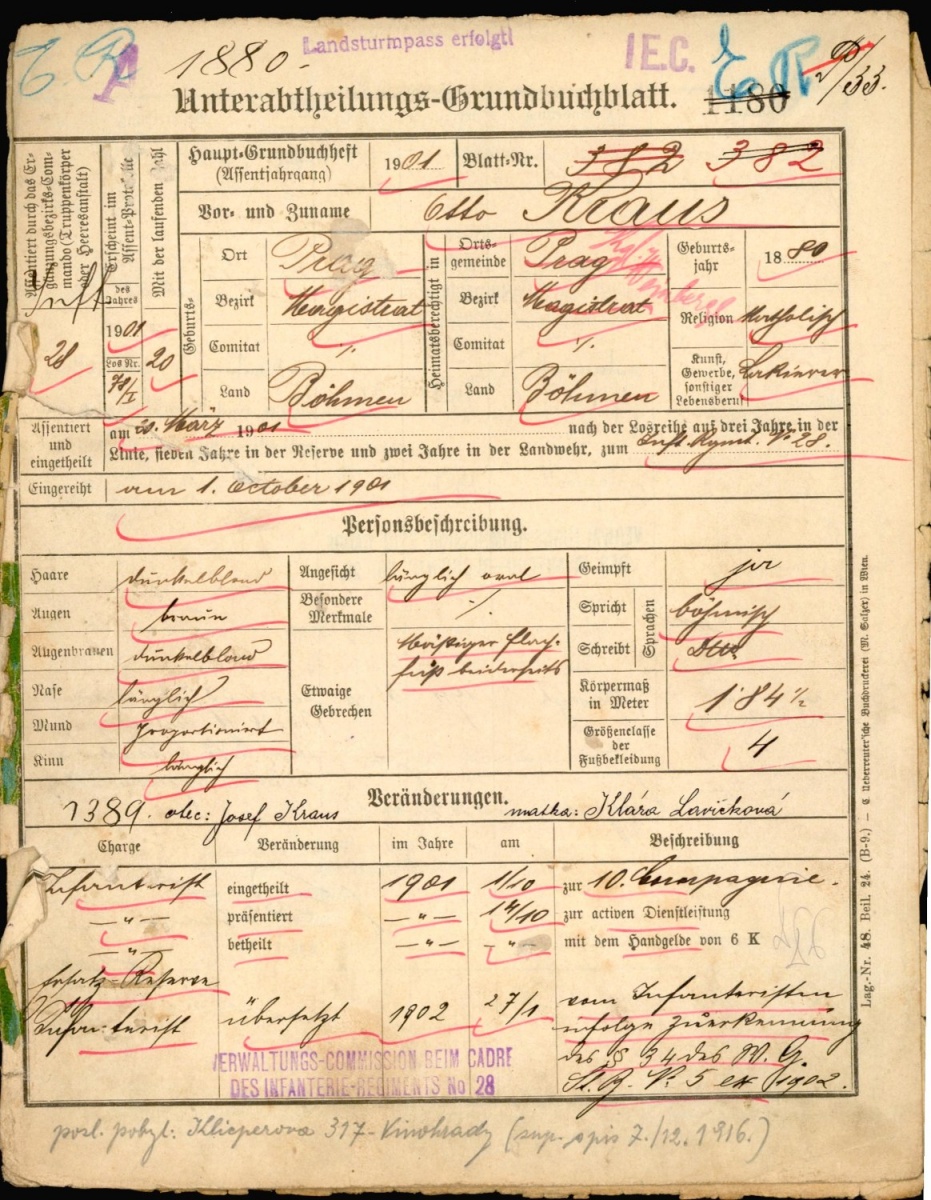 1880.
Landsturmpass erfolgt!
I E.C.
1180
Unterabtheilungs-Grundbuchblatt.
Assentiert durch das Ergänzungsbezirks-Commando (Truppenkörper oder Heeresanstalt)
28
Erscheint im Assent-Protokolle
des Jahres
1901
Los Nr.
Mit der laufenden Zahl
20
Haupt-Grundbuchheft
(Assentjahrgang)
1901
Blatt-Nr.
382 382
Vor- und Zuname Otto Kraus
Geburts-
Ort Prag
Bezirk Magistrat
Comitat ·/.
Land Böhmen
Heimatsberechtigt in
Ortsgemeinde Prag
Kgl. Weinberge
Bezirk Magistrat
Comitat ·/.
Land Böhmen
Geburtsjahr 1880
Religion katholisch
Kunst, Gewerbe, sonstiger Lebensberuf Lakirer
Assentiert und eingetheilt
am 20. März 1901 nach der Losreihe auf drei Jahre in der
Linie, sieben Jahre in der Reserve und zwei Jahre in der Landwehr, zum Inft. Rgmt. No 28.
Eingereiht am 1. October 1901
Personsbeschreibung.
Haare dunkelblond
Augen braun
Augenbrauen dunkelblond
Nase länglich
Mund proportioniert
Kinn länglich
Angesicht länglich oval
Besondere Merkmale ·/.
Etwaige Gebrechen
Mäßiger Flach-
fuß beiderseits
Geimpft ja
Sprachen
Spricht böhmisch
Schreibt Dtto
Körpermaß in Meter 1·84 ½
Größenclasse der Fußbekleidung 4
Veränderungen.
1389. otec: Josef Kraus matka: Klára Lavičková
Charge Veränderung im Jahre am Beschreibung
Infanterist eingetheilt 1901 1/10 zur 10. Compagnie.
—„— präsentiert —„— 14/10 zur activen Dienstleistung
—„— betheilt —„— —„— mit dem Handgelde von 6 K
Ersatz-Reserve
Infanterist übersetzt 1902 27/1 vom Infanteristen
infolge Zuerkennung
des § 34 des W. G.
St. B. No 5 ex 1902.
VERWALTUNGS-COMMISSION BEIM CADRE
DES INFANTERIE-REGIMENTS No 28
posl. pobyt: Klicperova 317 - Vinohrady (sup. spis 7./12. 1916.)
Lag.-Nr. 48. Beil. 24. (B-9.) — C. Ueberreuter'sche Buchdruckerei (M. Salzer) in Wien.